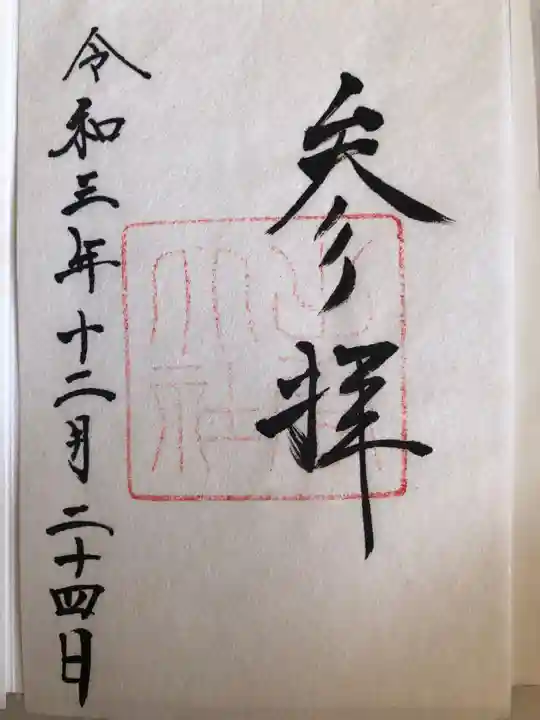 参拝
令和三年十二月二十四日